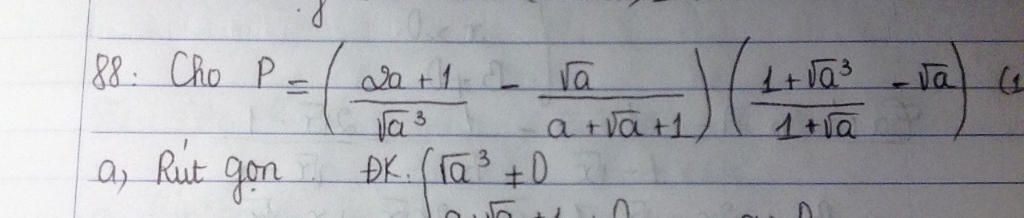 88. Cho P = ( (2a + 1)/√a³ - √a/(a + √a + 1) ) ( (1 + √a³)/(1 + √a) - √a ) (1
a, Rút gọn ĐK. { √a³ ≠ 0